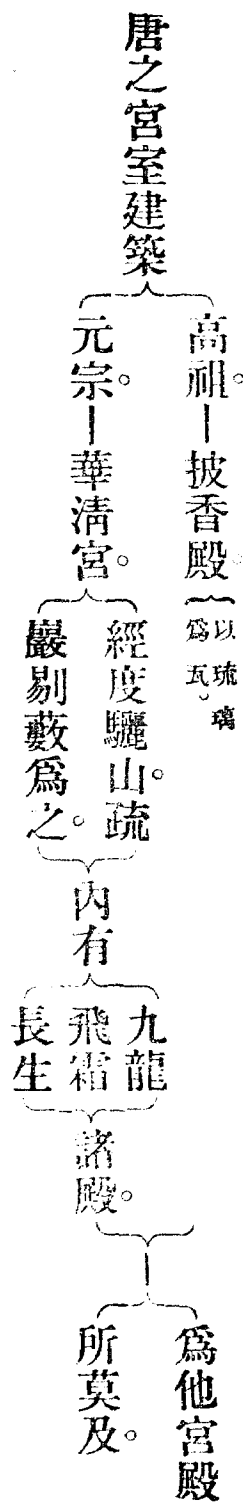 唐之宮室建築
高祖。—披香殿。
以琉璃
爲瓦。
元宗。—華清宮。
經度驪山。疏
巖剔藪爲之。
內有
九龍
飛霜
長生
諸殿。
爲他宮殿
所莫及。